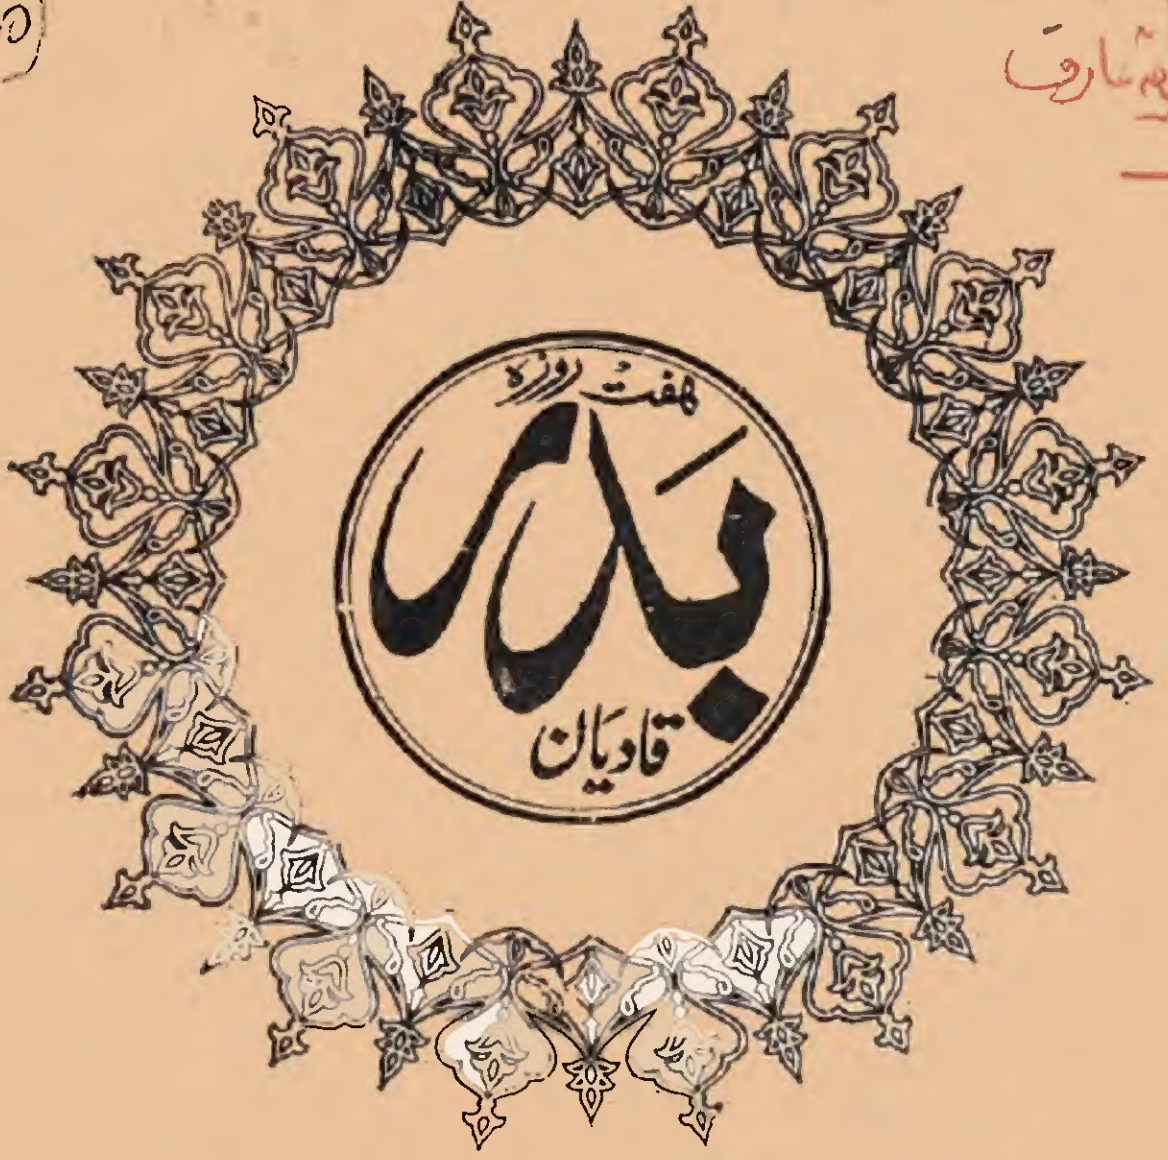 ہفت روزہ
بدر
قادیان